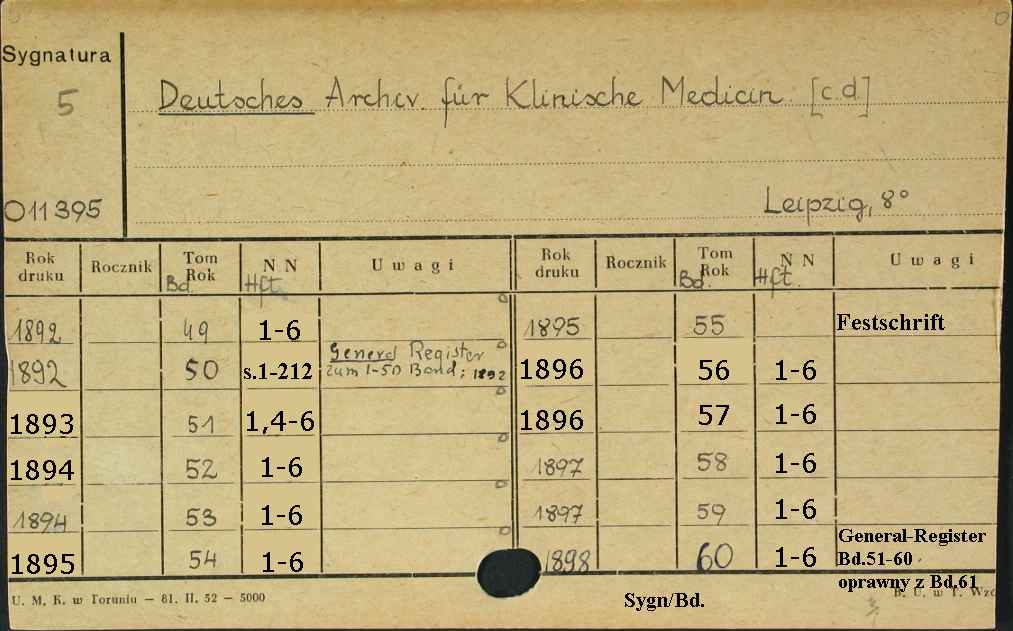 Sygnatura
5
Deutsches Archiv. für Klinische Medicin. [c.d]
011395
Leipzig, 8°
Rok druku Rocznik Tom Rok Bd. N N Hft. Uwagi Rok druku Rocznik Tom Rok Bd. N N Hft. Uwagi
1892 49 1-6 1895 55 Festschrift
1892 50 s.1-212 General Register zum 1-50 Band; 1892 1896 56 1-6
1893 51 1,4-6 1896 57 1-6
1894 52 1-6 1897 58 1-6
1894 53 1-6 1897 59 1-6
1895 54 1-6 1898 60 1-6 General-Register Bd.51-60 oprawny z Bd.61
U. M. K. w Toruniu — 81. II. 52 — 5000
Sygn/Bd.
B. U. w T. Wzo